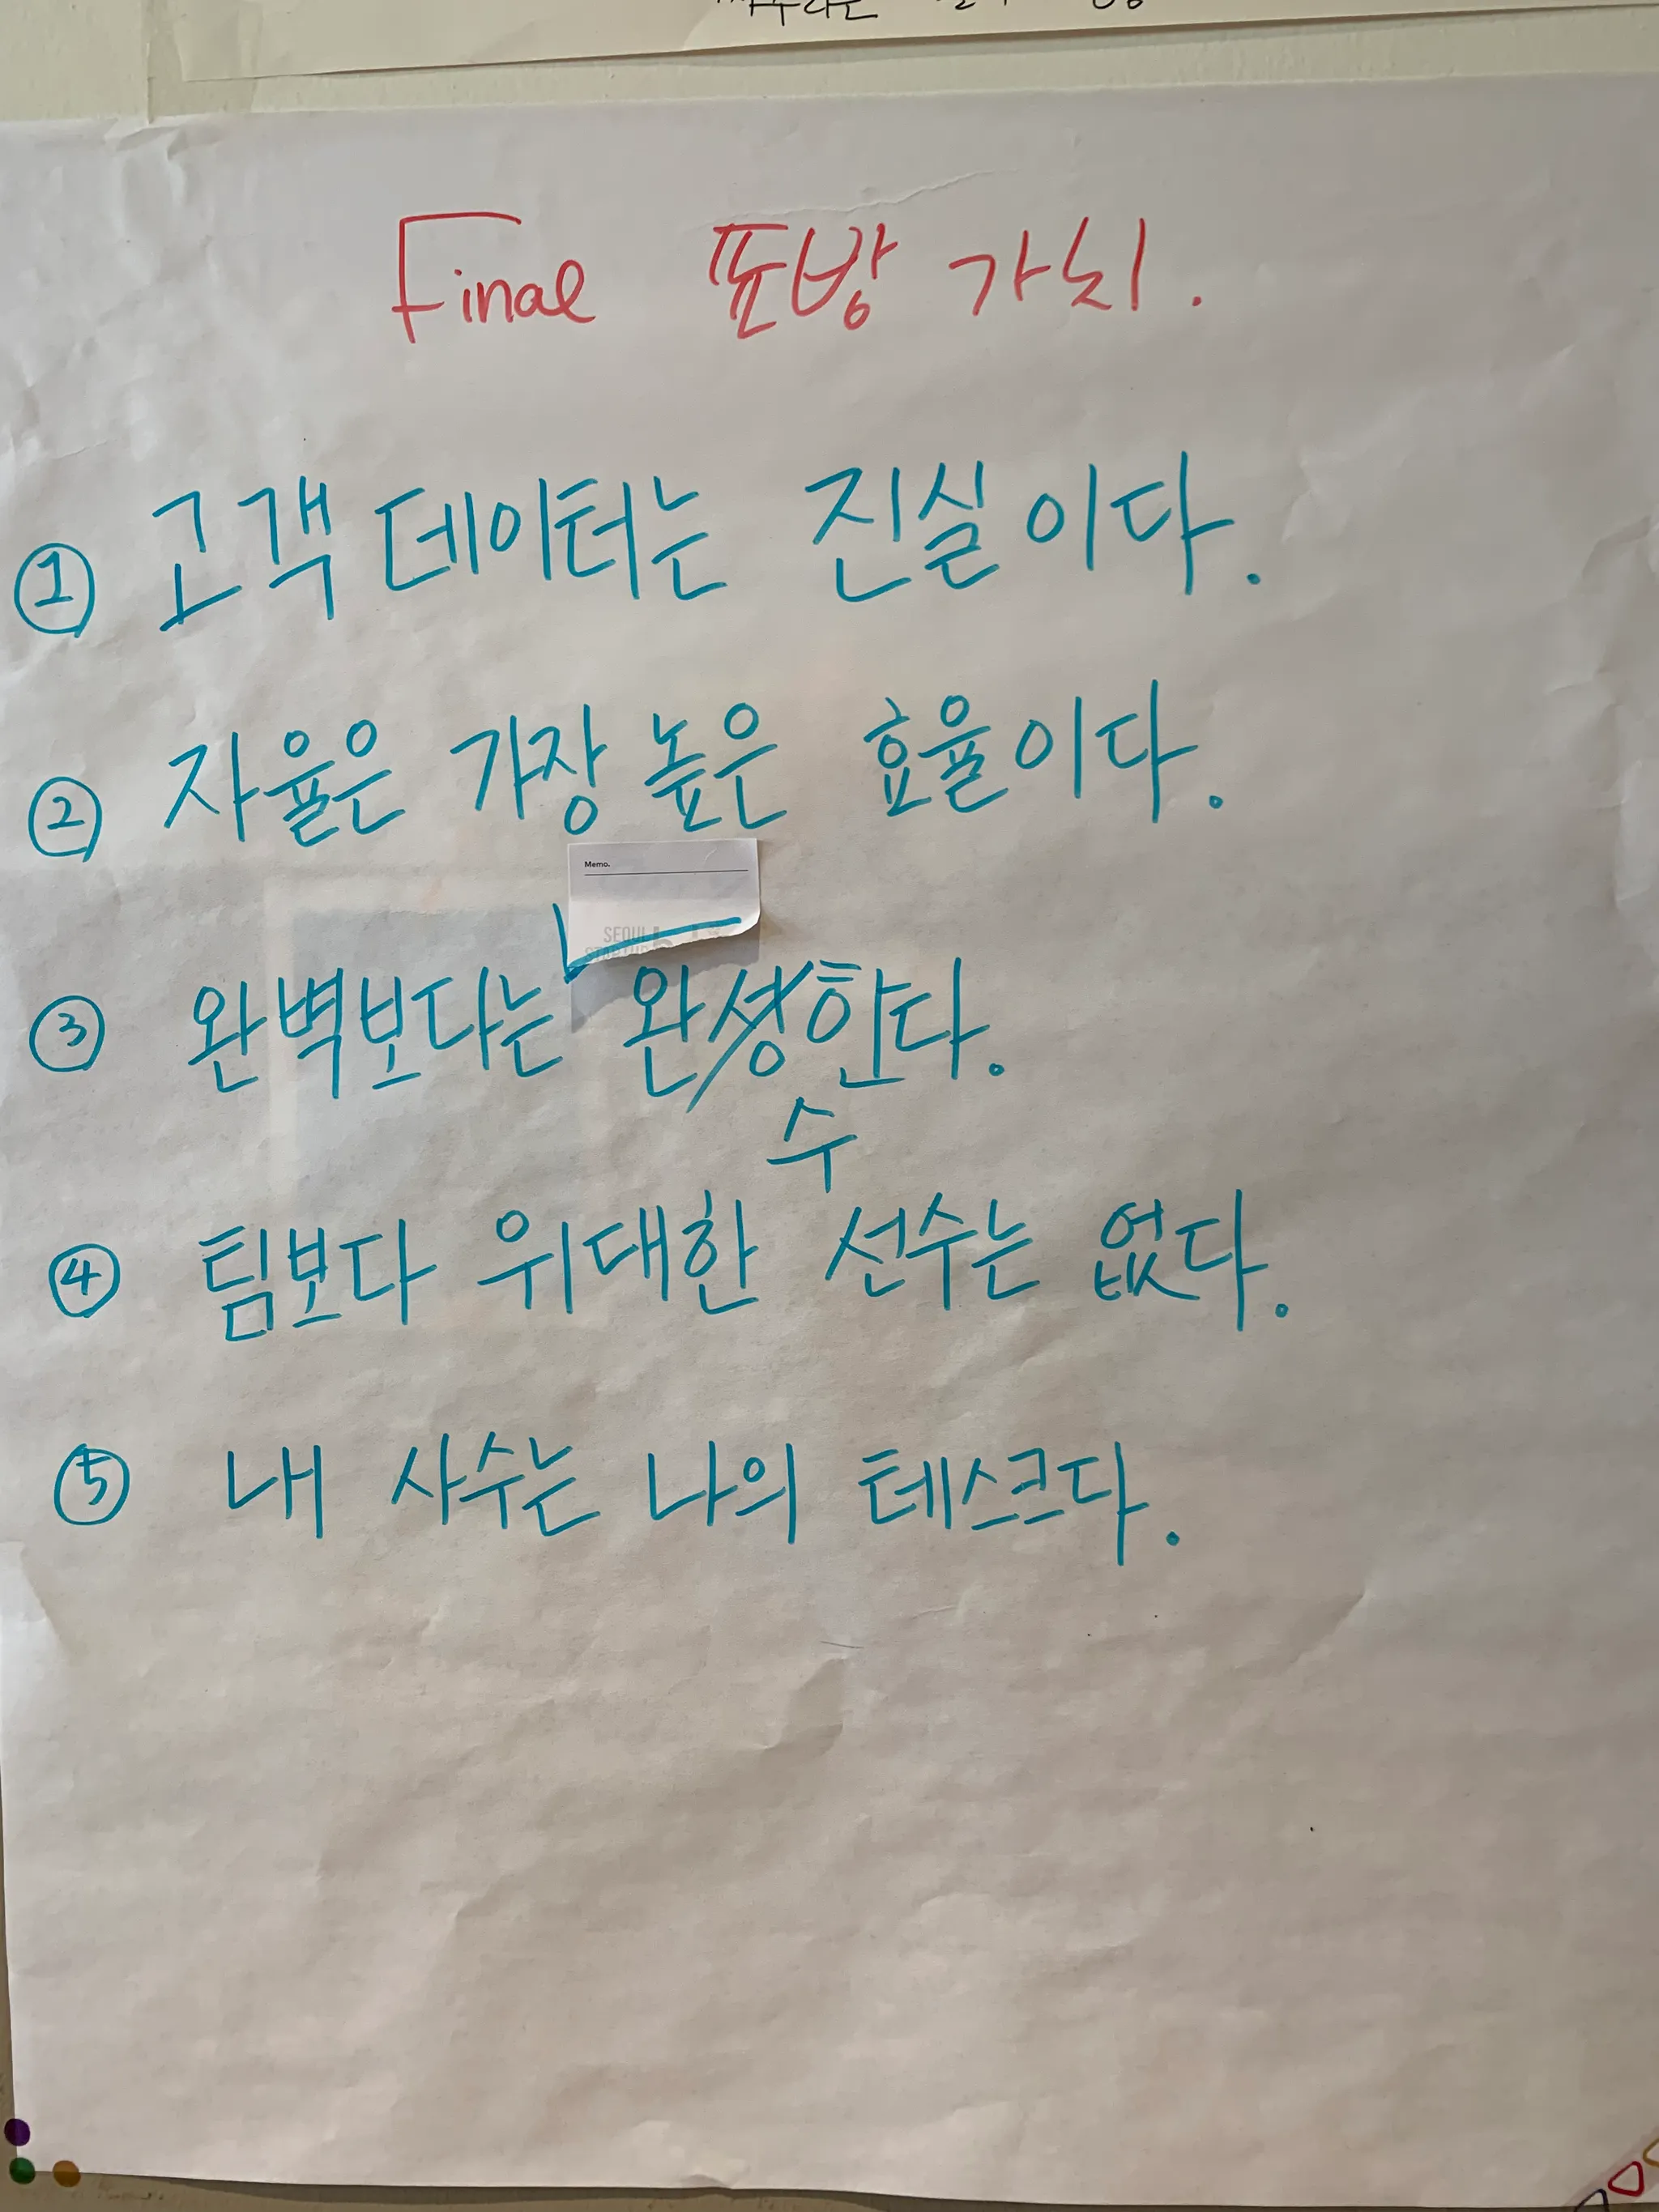 Final 표방 가치.
① 고객 데이터는 진실이다.
② 자율은 가장 높은 효율이다.
Memo.
SEOUL
③ 완벽보다는 완성한다.
수
④ 팀보다 위대한 선수는 없다.
⑤ 내 사수는 나의 테스크다.